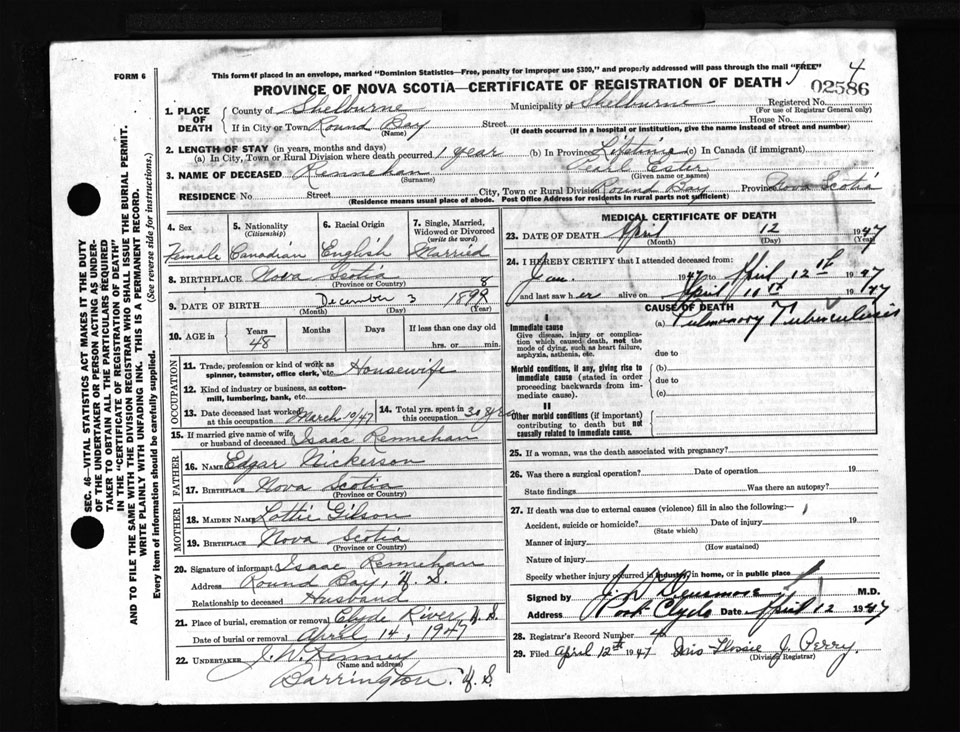 FORM 6
This form if placed in an envelope, marked "Dominion Statistics—Free, penalty for improper use $300," and properly addressed will pass through the mail "FREE"
4
PROVINCE OF NOVA SCOTIA—CERTIFICATE OF REGISTRATION OF DEATH
02586
1. PLACE OF DEATH County of Shelburne Municipality of Shelburne Registered No. (For use of Registrar General only)
If in City or Town Round Bay (Name) Street House No.
(If death occurred in a hospital or institution, give the name instead of street and number)
2. LENGTH OF STAY (in years, months and days)
(a) In City, Town or Rural Division where death occurred 1 year (b) In Province Lifetime (c) In Canada (if immigrant)
3. NAME OF DECEASED Rennehan (Surname) Pearl Ester (Given name or names)
RESIDENCE No Street City, Town or Rural Division Round Bay Province Nova Scotia
(Residence means usual place of abode. Post Office Address for residents in rural parts not sufficient)
4. Sex Female
5. Nationality (Citizenship) Canadian
6. Racial Origin English
7. Single, Married, Widowed or Divorced (write the word) Married
8. BIRTHPLACE Nova Scotia (Province or Country)
9. DATE OF BIRTH December 3 1899 8
(Month) (Day) (Year)
10. AGE in Years 48 Months Days If less than one day old hrs. or min.
OCCUPATION
11. Trade, profession or kind of work as spinner, teamster, office clerk, etc Housewife
12. Kind of industry or business, as cotton-mill, lumbering, bank, etc.
13. Date deceased last worked at this occupation March 10/47
14. Total yrs. spent in this occupation 30
15. If married give name of wife or husband of deceased Isaac Rennehan
FATHER
16. NAME Edgar Nickerson
17. BIRTHPLACE Nova Scotia (Province or Country)
MOTHER
18. MAIDEN NAME Lottie Gilson
19. BIRTHPLACE Nova Scotia (Province or Country)
20. Signature of informant Isaac Rennehan
Address Round Bay, N. S.
Relationship to deceased Husband
21. Place of burial, cremation or removal Clyde River, N. S.
Date of burial or removal April 14, 1947
22. UNDERTAKER J. W. Kenney
(Name and address)
Barrington. N. S
MEDICAL CERTIFICATE OF DEATH
23. DATE OF DEATH April 12 1947
(Month) (Day) (Year)
24. I HEREBY CERTIFY that I attended deceased from:
Jan. 1947 to April 12th 1947
and last saw her alive on April 11th 1947
CAUSE OF DEATH
I
Immediate cause
Give disease, injury or complication which caused death, not the mode of dying, such as heart failure, asphyxia, asthenia, etc.
(a) Pulmonary Tuberculosis
due to
Morbid conditions, if any, giving rise to immediate cause (stated in order proceeding backwards from immediate cause).
(b)
due to
(c)
II
Other morbid conditions (if important) contributing to death but not causally related to immediate cause.
25. If a woman, was the death associated with pregnancy?
26. Was there a surgical operation? Date of operation 19
State findings Was there an autopsy?
27. If death was due to external causes (violence) fill in also the following:—
Accident, suicide or homicide? Date of injury 19
(State which)
Manner of injury
(How sustained)
Nature of injury
Specify whether injury occurred in industry, in home, or in public place
Signed by M.D.
Address Port Clyde Date April 12 1947
28. Registrar's Record Number 4
29. Filed April 12th 1947 Flossie J. Perry.
(Division Registrar)
SEC. 46—VITAL STATISTICS ACT MAKES IT THE DUTY
OF THE UNDERTAKER OR PERSON ACTING AS UNDER-
TAKER TO OBTAIN ALL THE PARTICULARS REQUIRED
IN THE "CERTIFICATE OF REGISTRATION OF DEATH"
AND TO FILE THE SAME WITH THE DIVISION REGISTRAR WHO SHALL ISSUE THE BURIAL PERMIT.
WRITE PLAINLY WITH UNFADING INK. THIS IS A PERMANENT RECORD.
Every item of information should be carefully supplied. (See reverse side for instructions.)